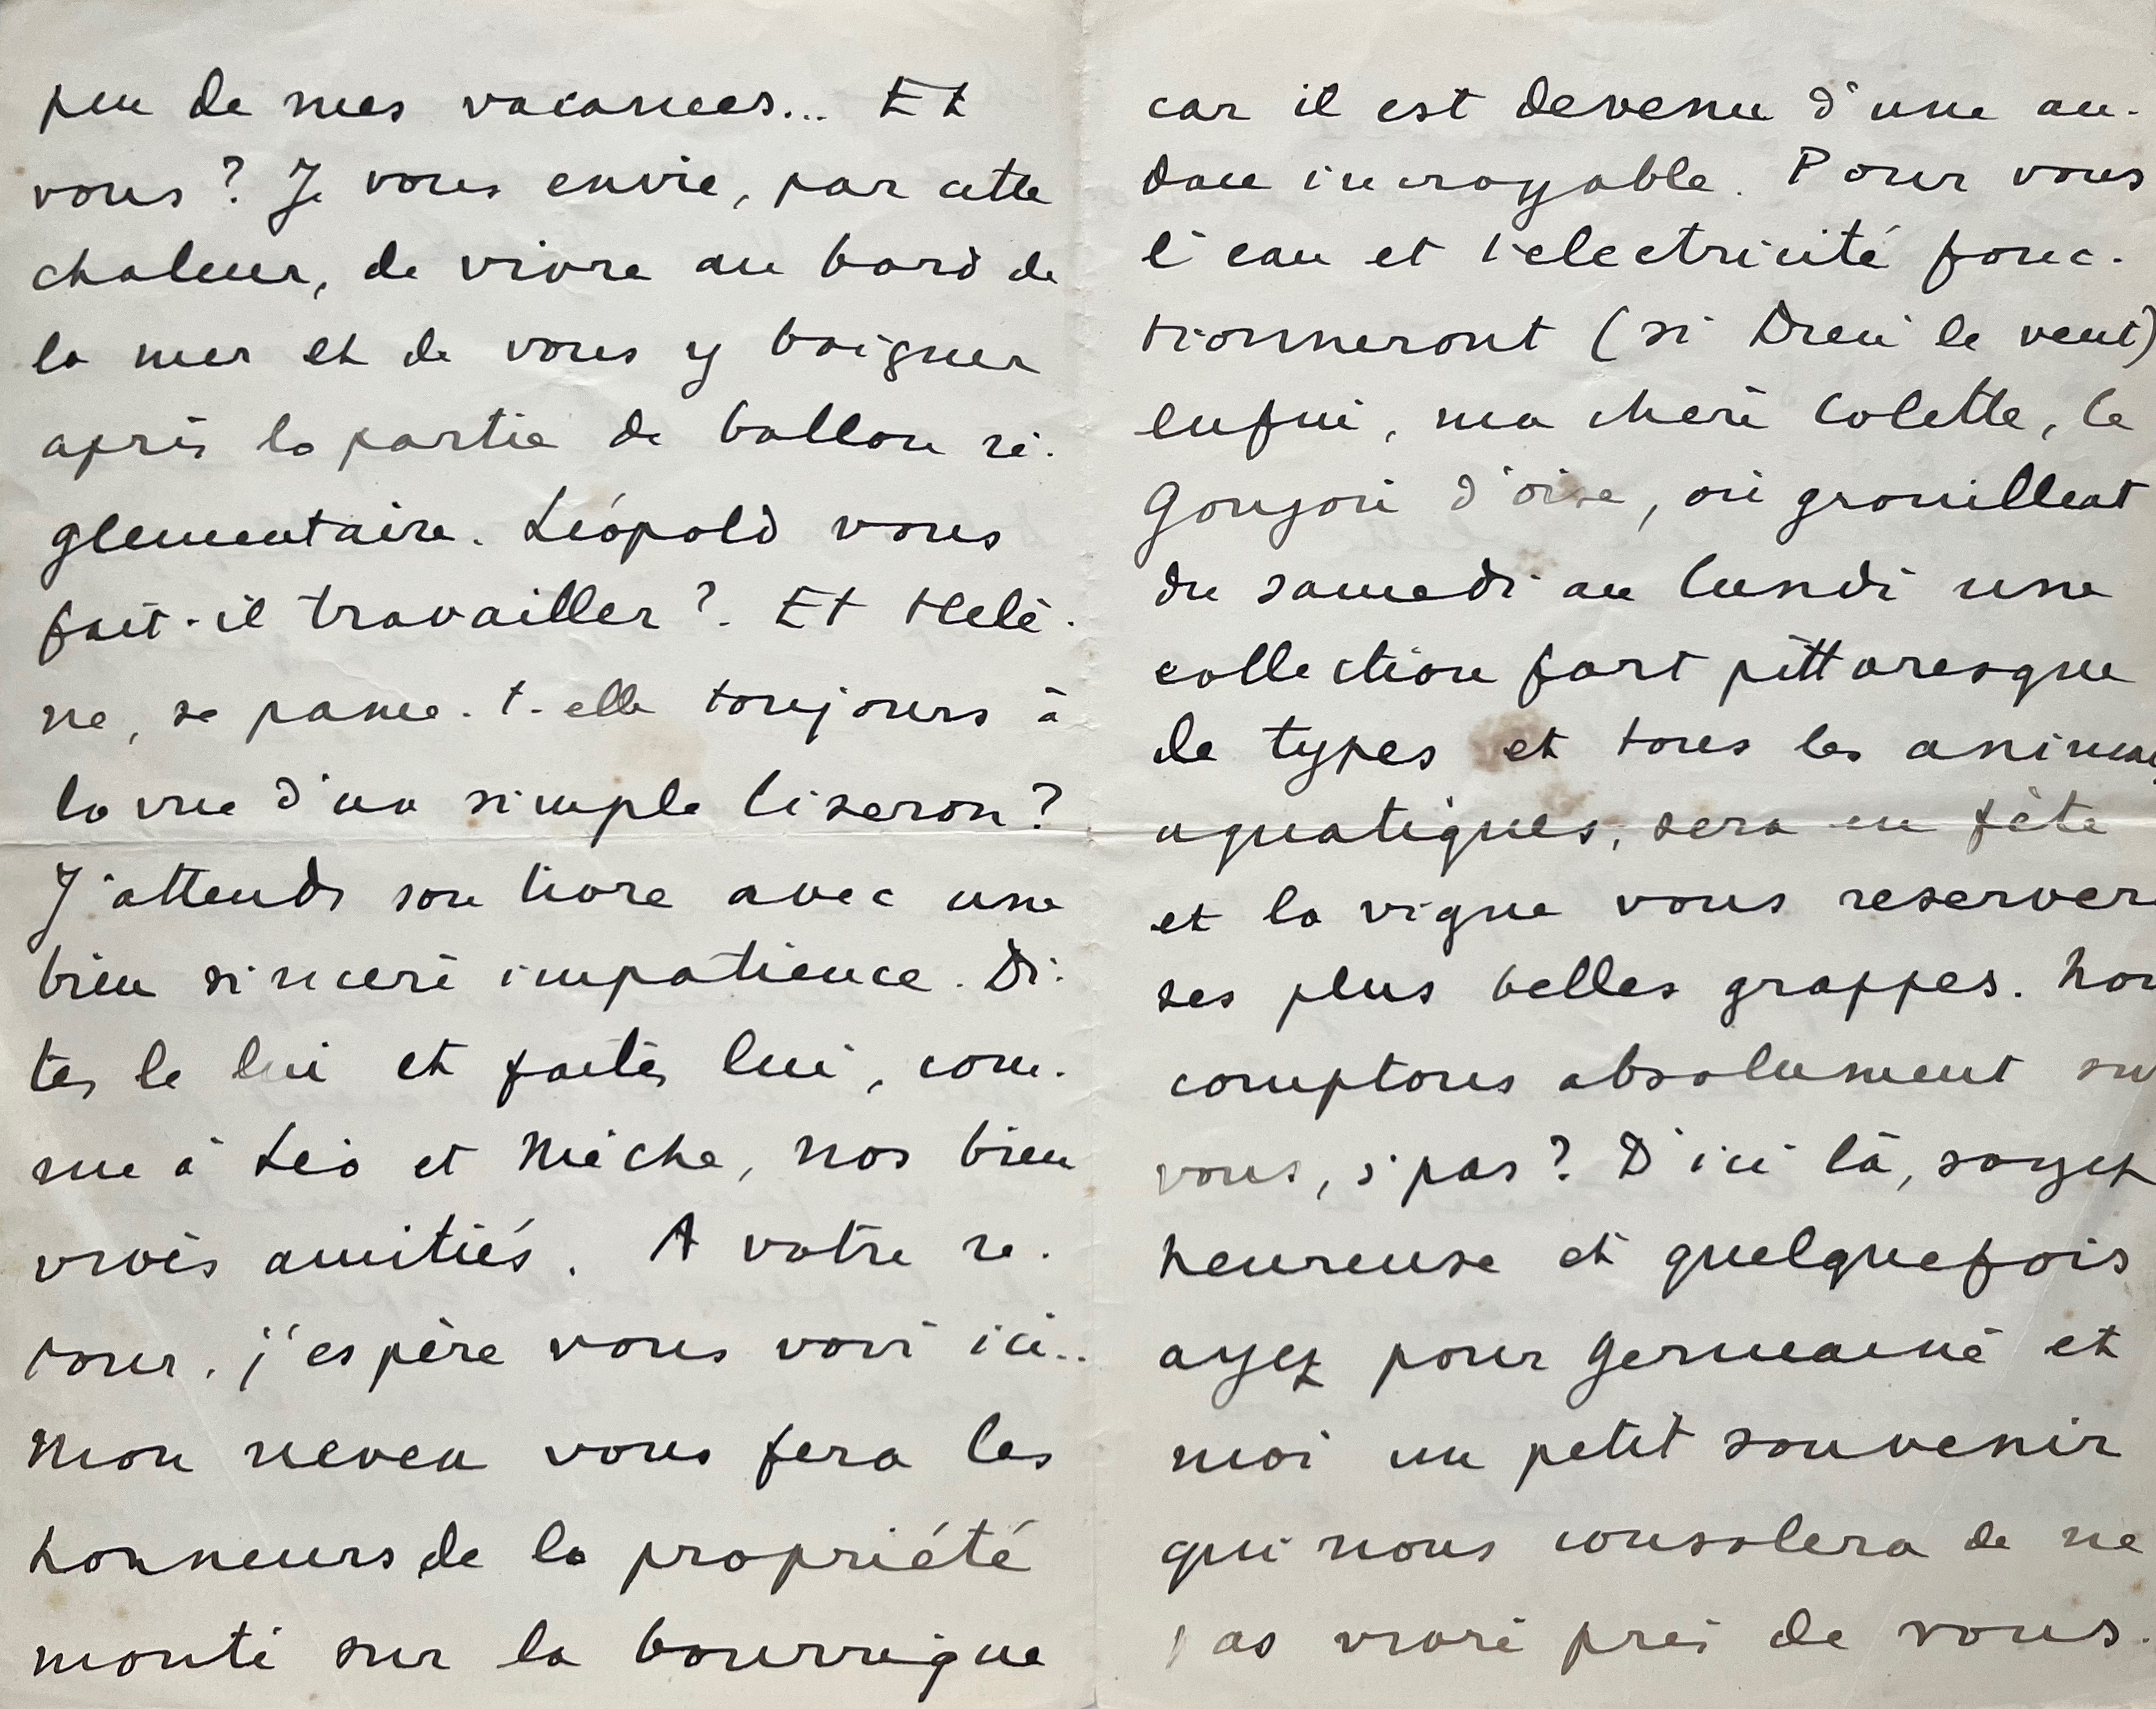 peu de mes vacances... Et
vous ? Je vous envie, par cette
chaleur, de vivre au bord de
la mer et de vous y baigner
après la partie de ballon ré-
glementaire. Léopold vous
fait-il travailler ? Et Hélè-
ne, se pame-t-elle toujours à
la vue d'un simple liseron ?
J'attends son livre avec une
bien sincère impatience. Di-
tes le lui et faites lui, com-
me à Léo et Mèche, nos bien
vraies amitiés. A votre re-
tour, j'espère vous voir ici..
Mon neveu vous fera les
honneurs de la propriété
monté sur la bourrique
car il est devenu d'une au-
dace incroyable. Pour vous
l'eau et l'electricité fonc-
tionneront (si Dieu le veut)
enfin, ma chère Colette, le
Goujon d'oise, où grouillent
du samedi au lundi une
collection fort pittoresque
de types et tous les animau
aquatiques, sera en fête
et la vigne vous reserver
ses plus belles grappes. Nou
comptons absolument sur
vous, s'pas ? D'ici là, soyez
heureuse et quelquefois
ayez pour Germaine et
moi un petit souvenir
qui nous consolera de ne
pas vivre près de vous.